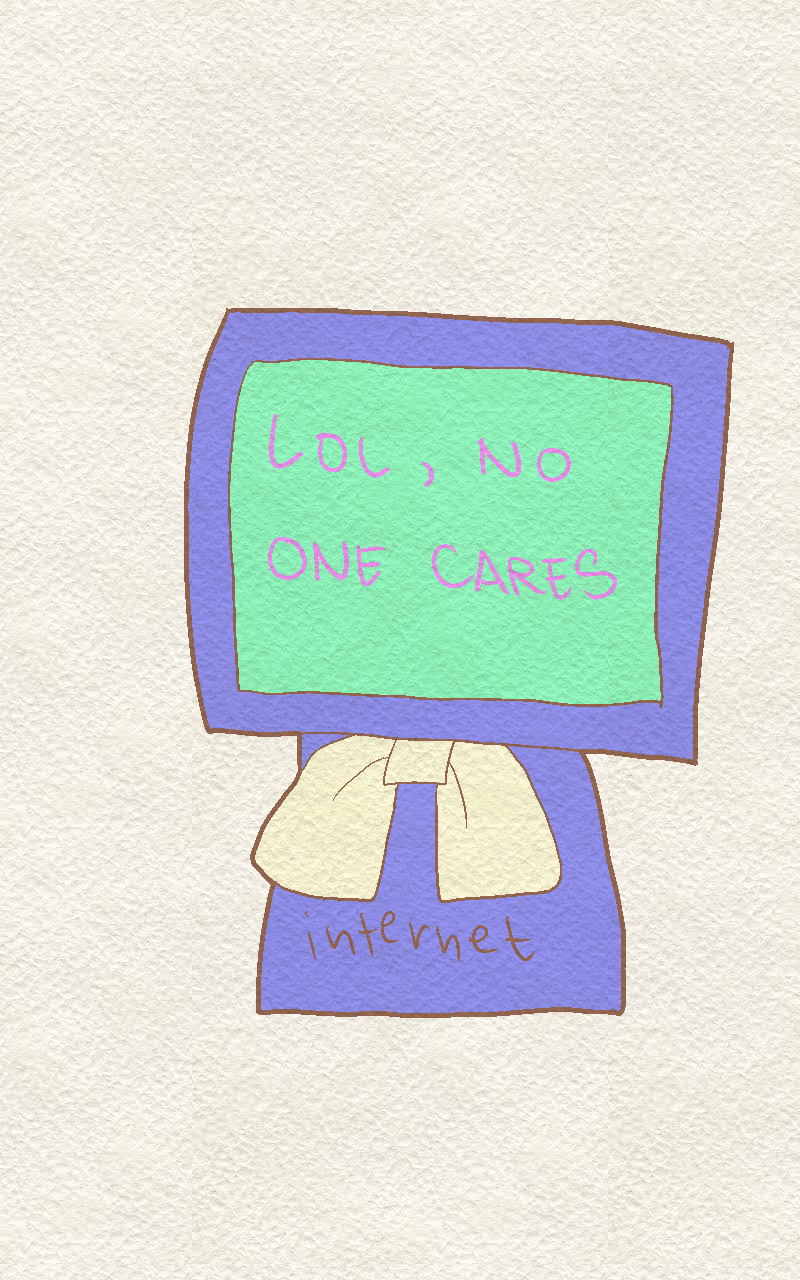 LOL, NO
ONE CARES
internet